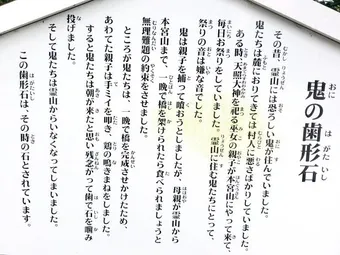 鬼の歯形石
その昔、霊山には恐ろしい鬼が住んでいました。
鬼たちは麓におりてきては村人に悪さばかりしていました。
ある時、天照大神を祀る巫女の親子が本宮山にやって来て、
毎日お祭りをしていました。霊山に住む鬼たちにとって、
祭りの音は嫌な音でした。
鬼は親子を捕って喰おうとしましたが、母親が霊山から
本宮山まで、一晩で橋を架けられたら食べられましょうと
無理難題の約束をさせました。
ところが鬼たちは、一晩で橋を完成させかけたため、
あわてた親子は手ミイを叩き、鶏の鳴きまねをしました。
すると鬼たちは朝が来たと思い残念がって歯で石を噛み
投げました。
そして鬼たちは霊山からいなくなってしまいました。
この歯形石は、その時の石とされています。